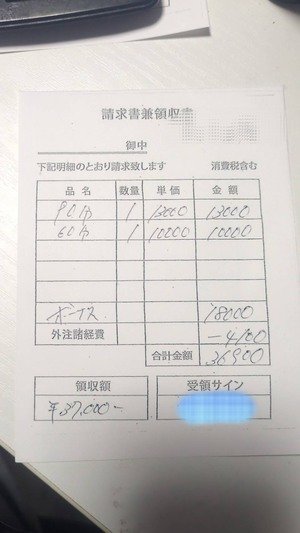 請求書兼領収書
御中
下記明細のとおり請求致します 消費税含む
品名 数量 単価 金額
90分 1 13000 13000
60分 1 10000 10000
ボーナス 18000
外注諸経費 -4100
合計金額 36900
領収額 受領サイン
¥37,000-